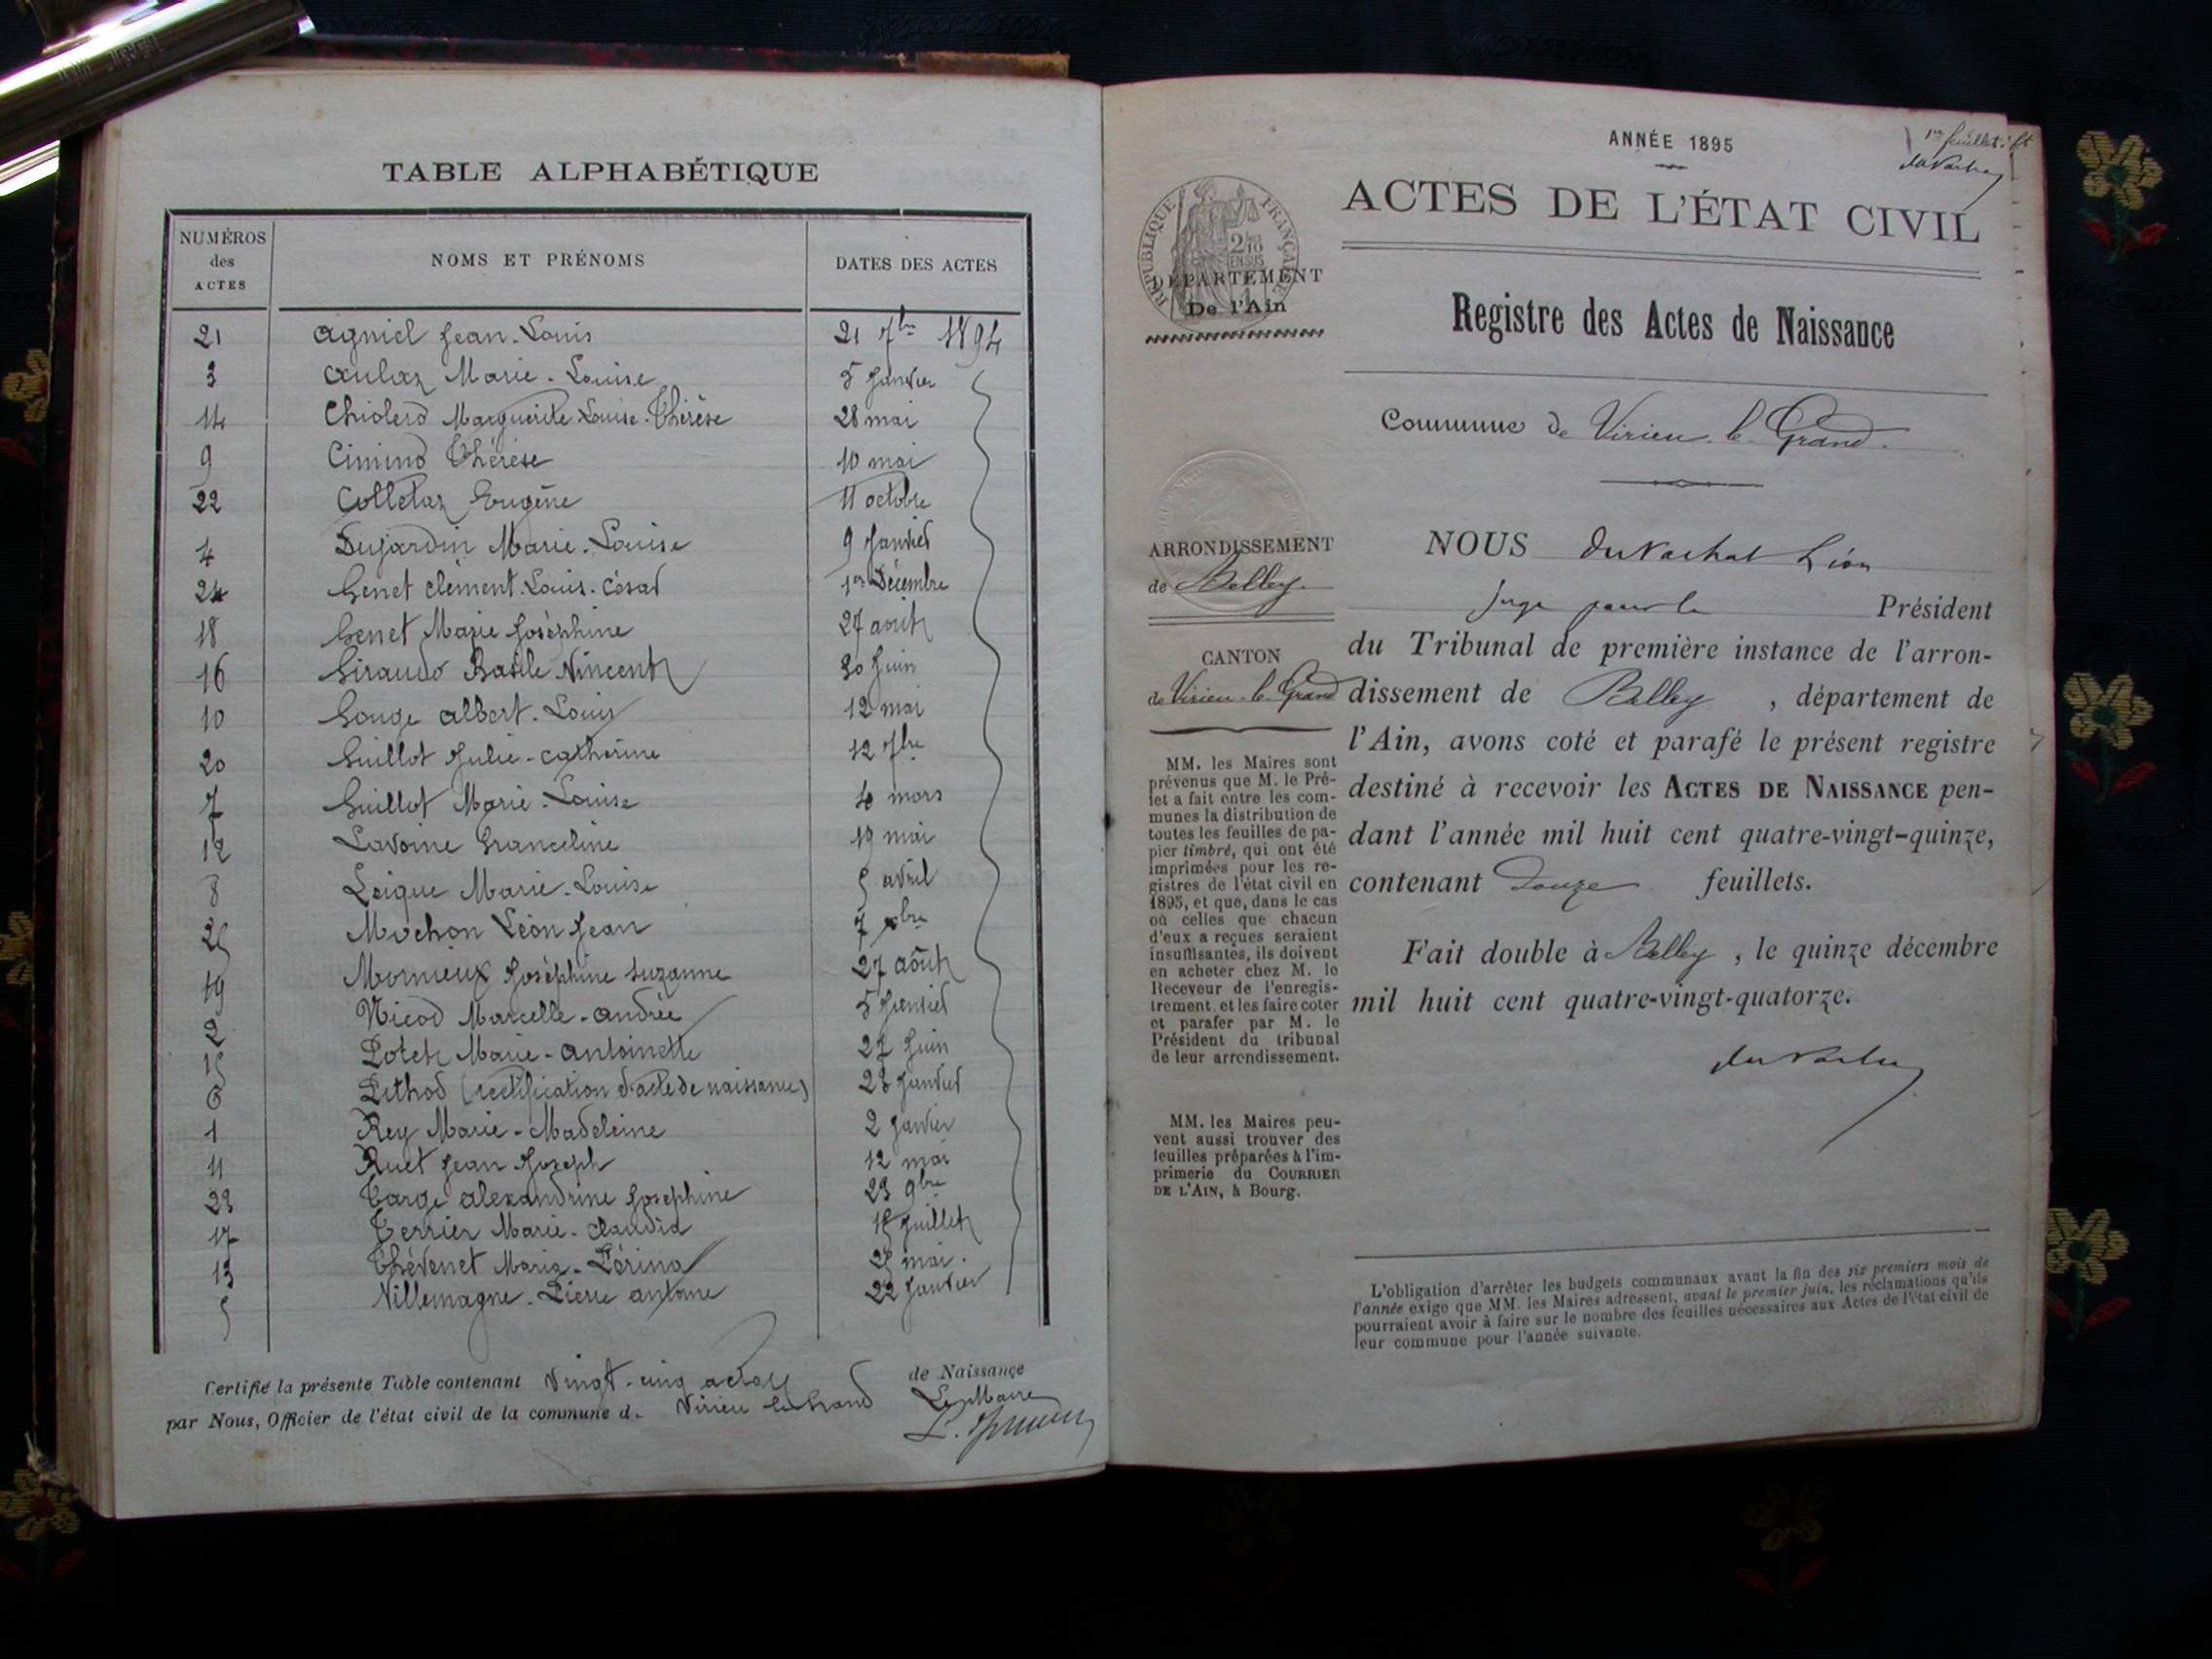 TABLE ALPHABÉTIQUE
NUMÉROS des ACTES NOMS ET PRÉNOMS DATES DES ACTES
21 Agniel Jean-Louis 21 7bre 1894
3 Aulaz Marie-Louise 5 Janvier
14 Chiolero Marguerite Louise-Thérèse 28 mai
9 Cimino Thérèse 10 mai
22 Colletaz Eugène 11 octobre
4 Dujardin Marie-Louise 9 Janvier
24 Genet Clément-Louis-César 1er Décembre
18 Genet Marie Joséphine 27 août
16 Giraudo Basile Vincent 30 Juin
10 Gouge Albert-Louis 12 mai
20 Guillot Julie-Catherine 12 7bre
7 Guillot Marie-Louise 4 mars
12 Lavoine Franceline 19 mai
8 Léique Marie-Louise 5 avril
25 Mochon Léon Jean 7 xbre
19 Mornieux Joséphine Suzanne 27 août
2 Nicod Marcelle-Andrée 5 Janvier
15 Marie-Antoinette 27 Juin
6 Pithod (rectification d'acte de naissance) 23 Janvier
1 Rey Marie-Madeleine 2 Janvier
11 Ruet Jean Joseph 12 mai
23 Targe Alexandrine Joséphine 23 9bre
17 Terrier Marie-Claudia 15 Juillet
13 Thévenet Maria-Périna 25 mai
5 Villemagne-Pierre Antoine 22 Janvier
Certifié la présente Table contenant Vingt-cinq actes de Naissance
par Nous, Officier de l'état civil de la commune d. Virieu le Grand
Le Maire
1er feuillet
ANNÉE 1895
ACTES DE L'ÉTAT CIVIL
RÉPUBLIQUE FRANÇAISE
DÉPARTEMENT
De l'Ain
Registre des Actes de Naissance
Commune de Virieu-le-Grand.
ARRONDISSEMENT
de Belley.
CANTON
de Virieu-le-Grand
MM. les Maires sont
prévenus que M. le Pré-
fet a fait entre les com-
munes la distribution de
toutes les feuilles de pa-
pier timbré, qui ont été
imprimées pour les re-
gistres de l'état civil en
1895, et que, dans le cas
où celles que chacun
d'eux a reçues seraient
insuffisantes, ils doivent
en acheter chez M. le
Receveur de l'enregis-
trement, et les faire coter
et parafer par M. le
Président du tribunal
de leur arrondissement.
MM. les Maires peu-
vent aussi trouver des
feuilles préparées à l'im-
primerie du COURRIER
DE L'AIN, à Bourg.
NOUS Duvachat Léon
juge pour le Président
du Tribunal de première instance de l'arron-
dissement de Belley, département de
l'Ain, avons coté et parafé le présent registre
destiné à recevoir les ACTES DE NAISSANCE pen-
dant l'année mil huit cent quatre-vingt-quinze,
contenant Douze feuillets.
Fait double à Belley, le quinze décembre
mil huit cent quatre-vingt-quatorze.
L'obligation d'arrêter les budgets communaux avant la fin des six premiers mois de
l'année exige que MM. les Maires adressent, avant le premier juin, les réclamations qu'ils
pourraient avoir à faire sur le nombre des feuilles nécessaires aux Actes de l'état civil de
leur commune pour l'année suivante.